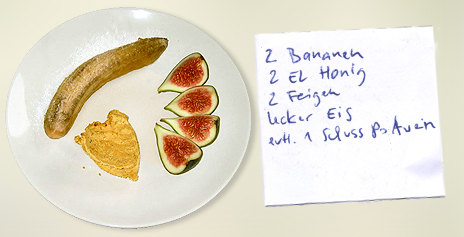 2 Bananen
2 EL Honig
2 Feigen
Lecker Eis
evtl. 1 Schuss